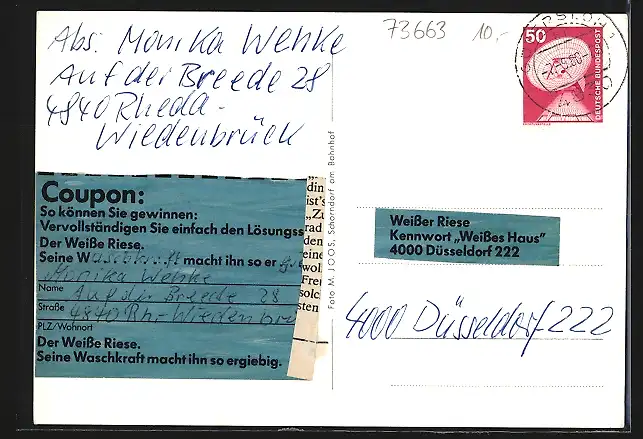 Abs. Monika Wehke
Auf der Breede 28
4840 Rheda-
Wiedenbrück
73663 10,-
50
DEUTSCHE BUNDESPOST
Coupon:
So können Sie gewinnen:
Vervollständigen Sie einfach den Lösungss
Der Weiße Riese.
Seine Waschkraft macht ihn so er
Monika Wehke
Name
Auf der Breede 28
Straße
4840 Rh.-Wiedenbrü
PLZ/Wohnort
Der Weiße Riese.
Seine Waschkraft macht ihn so ergiebig.
din
ist's
„Zu
rad
den
eine
woll
Fre
solc
sten
Foto M. JOOS, Schorndorf am Bahnhof
Weißer Riese
Kennwort „Weißes Haus"
4000 Düsseldorf 222
4000 Düsseldorf 222